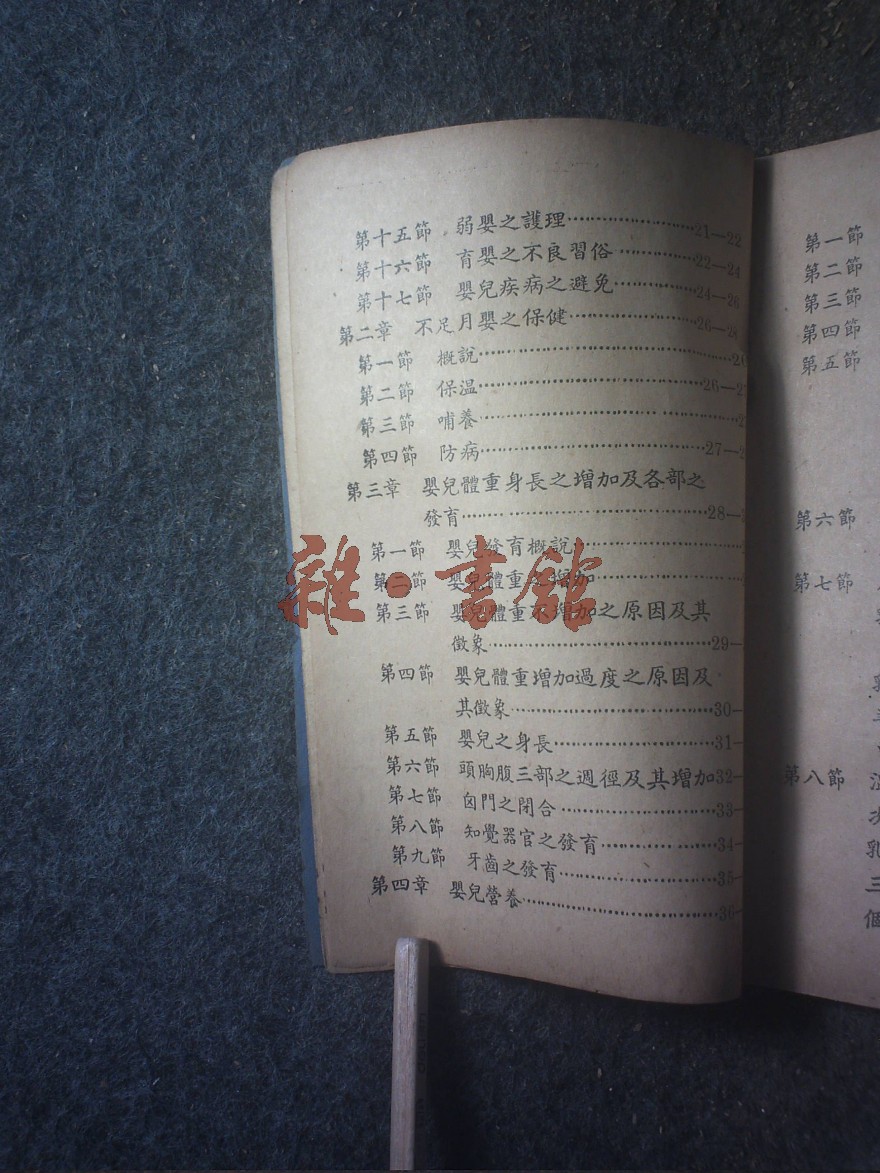 第十五節 弱嬰之護理……21—22
第十六節 育嬰之不良習俗……22—24
第十七節 嬰兒疾病之避免……24—26
第二章 不足月嬰之保健……26—28
第一節 概說……
第二節 保溫……26—
第三節 哺養……
第四節 防病……27—
第三章 嬰兒體重身長之增加及各部之
發育……28—
第一節 嬰兒發育概說……
第二節 嬰兒體重之增加……
第三節 嬰兒體重不增加之原因及其
徵象……29—
第四節 嬰兒體重增加過度之原因及
其徵象……30—
第五節 嬰兒之身長……31—
第六節 頭胸腹三部之週徑及其增加32—
第七節 囟門之閉合……33—
第八節 知覺器官之發育……34—
第九節 牙齒之發育……35—
第四章 嬰兒營養……36—
雜·書館
第一節
第二節
第三節
第四節
第五節
第六節
第七節
第八節
乳
三
個